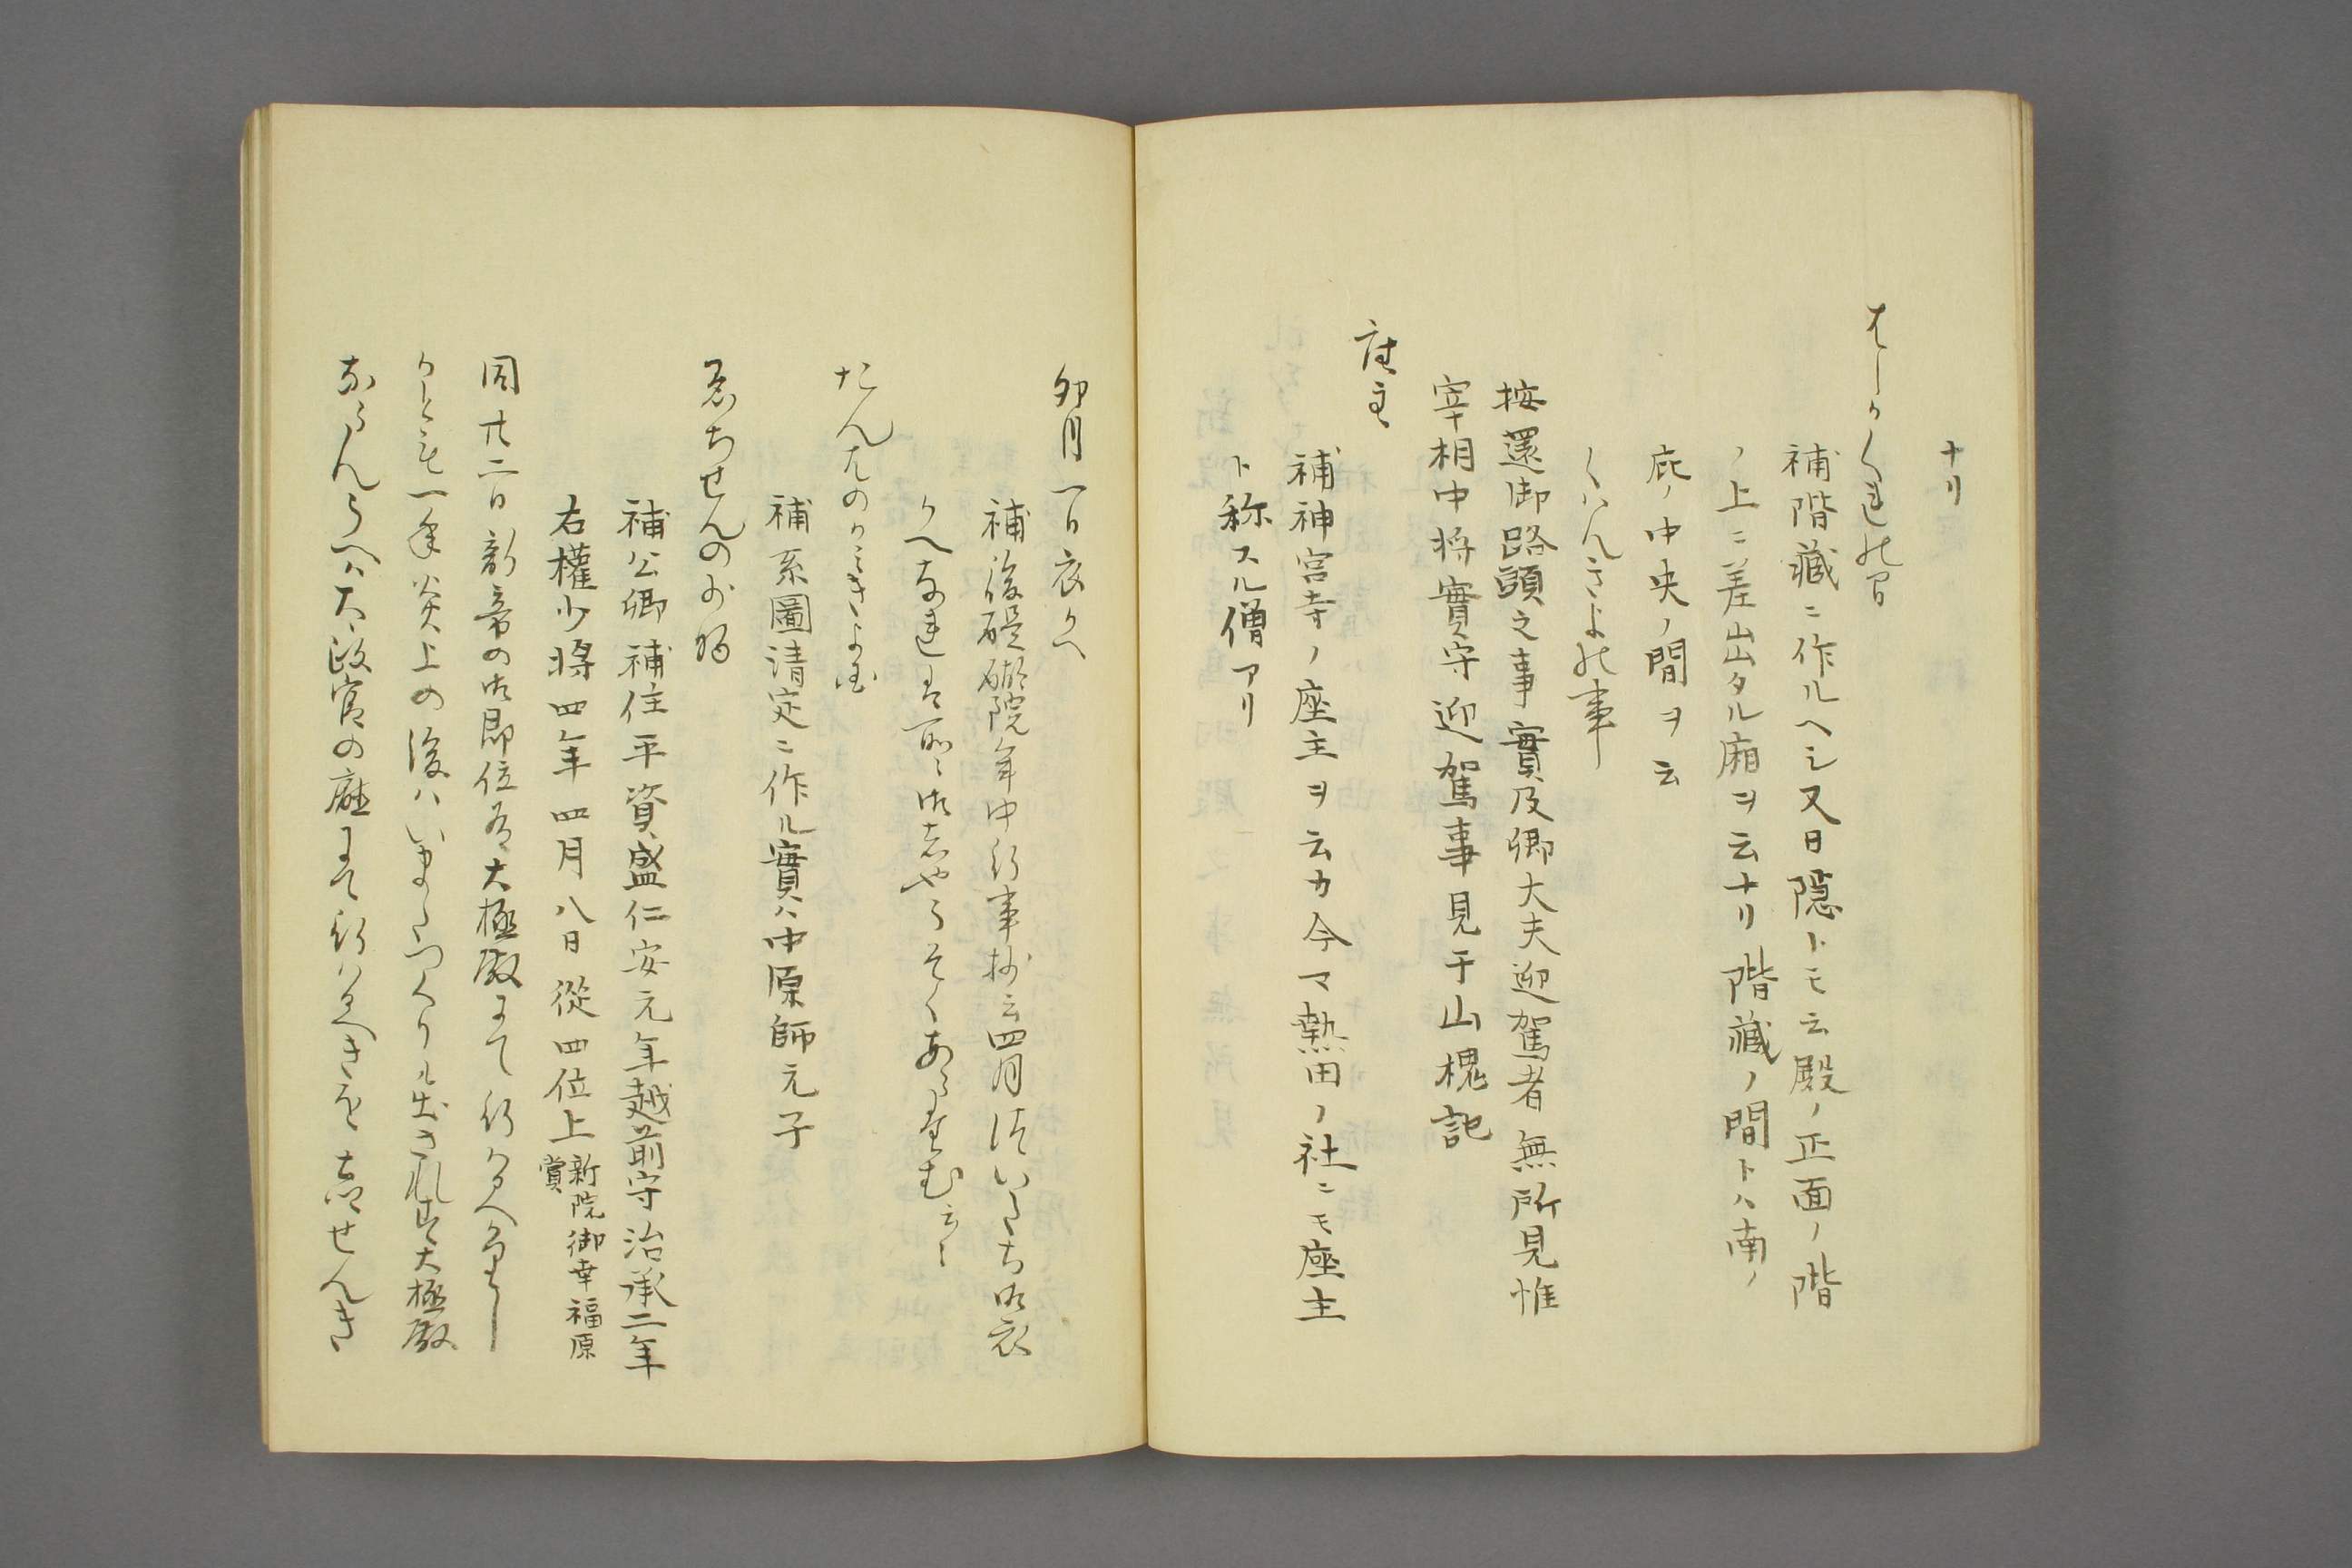 ナリ
はしかくれの間
補階藏ニ作ルヘシ又日隠トモ云殿ノ正面ノ階
ノ上ニ差出タル廂ヲ云ナリ階藏ノ間トハ南ノ
庇ノ中央ノ間ヲ云
くはんきよの事
按還御路頭之事實及卿大夫迎駕者無所見惟
宰相中将實守迎駕事見于山槐記
座主
補神宮寺ノ座主ヲ云カ今マ熱田ノ社ニモ座主
ト称スル僧アリ
卯月一日衣かへ
補後醍醐院年中行事抄云四月 ついたち御衣
かへなれは所々御しやうそくあらたむ云々
たんなのかみきよ
補系圖清定ニ作ル實ハ中原師元子
ゑちせんの少将
補公卿補任平資盛仁安元年越前守治承二年
右權少将四年四月八日從四位上新院御幸福原
賞
同廿二日新帝の御即位 大極殿にて行はるへかりし
かとも一年炎上の後ハいまたつくりも出されす大極殿
なからんうへハ太政官の廳にて行はるへきを せんき